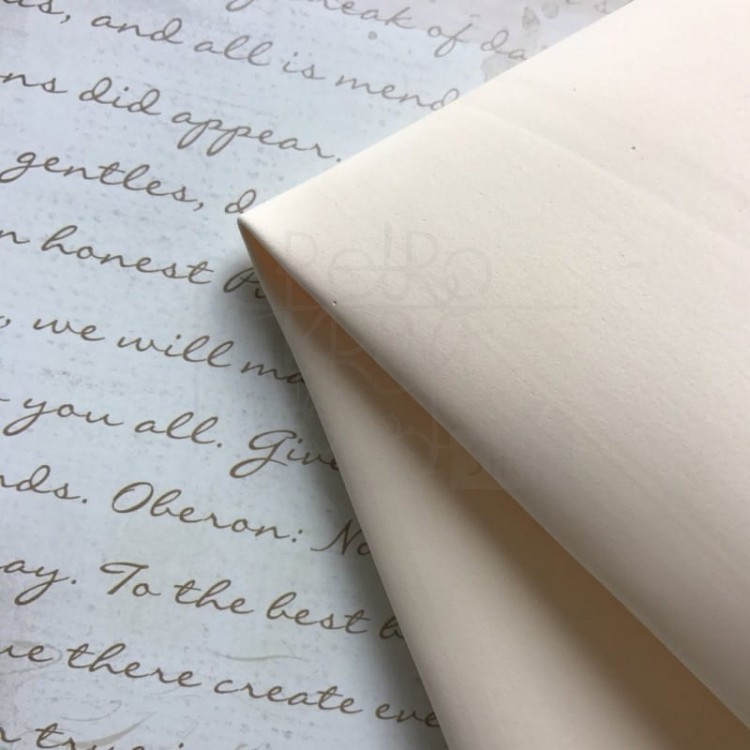 break of da
and all is mend
ns did appear.
gentles, d
n honest P
, we will ma
you all. Give
nds. Oberon: No
ay. To the best b
ue there create eve
Retro